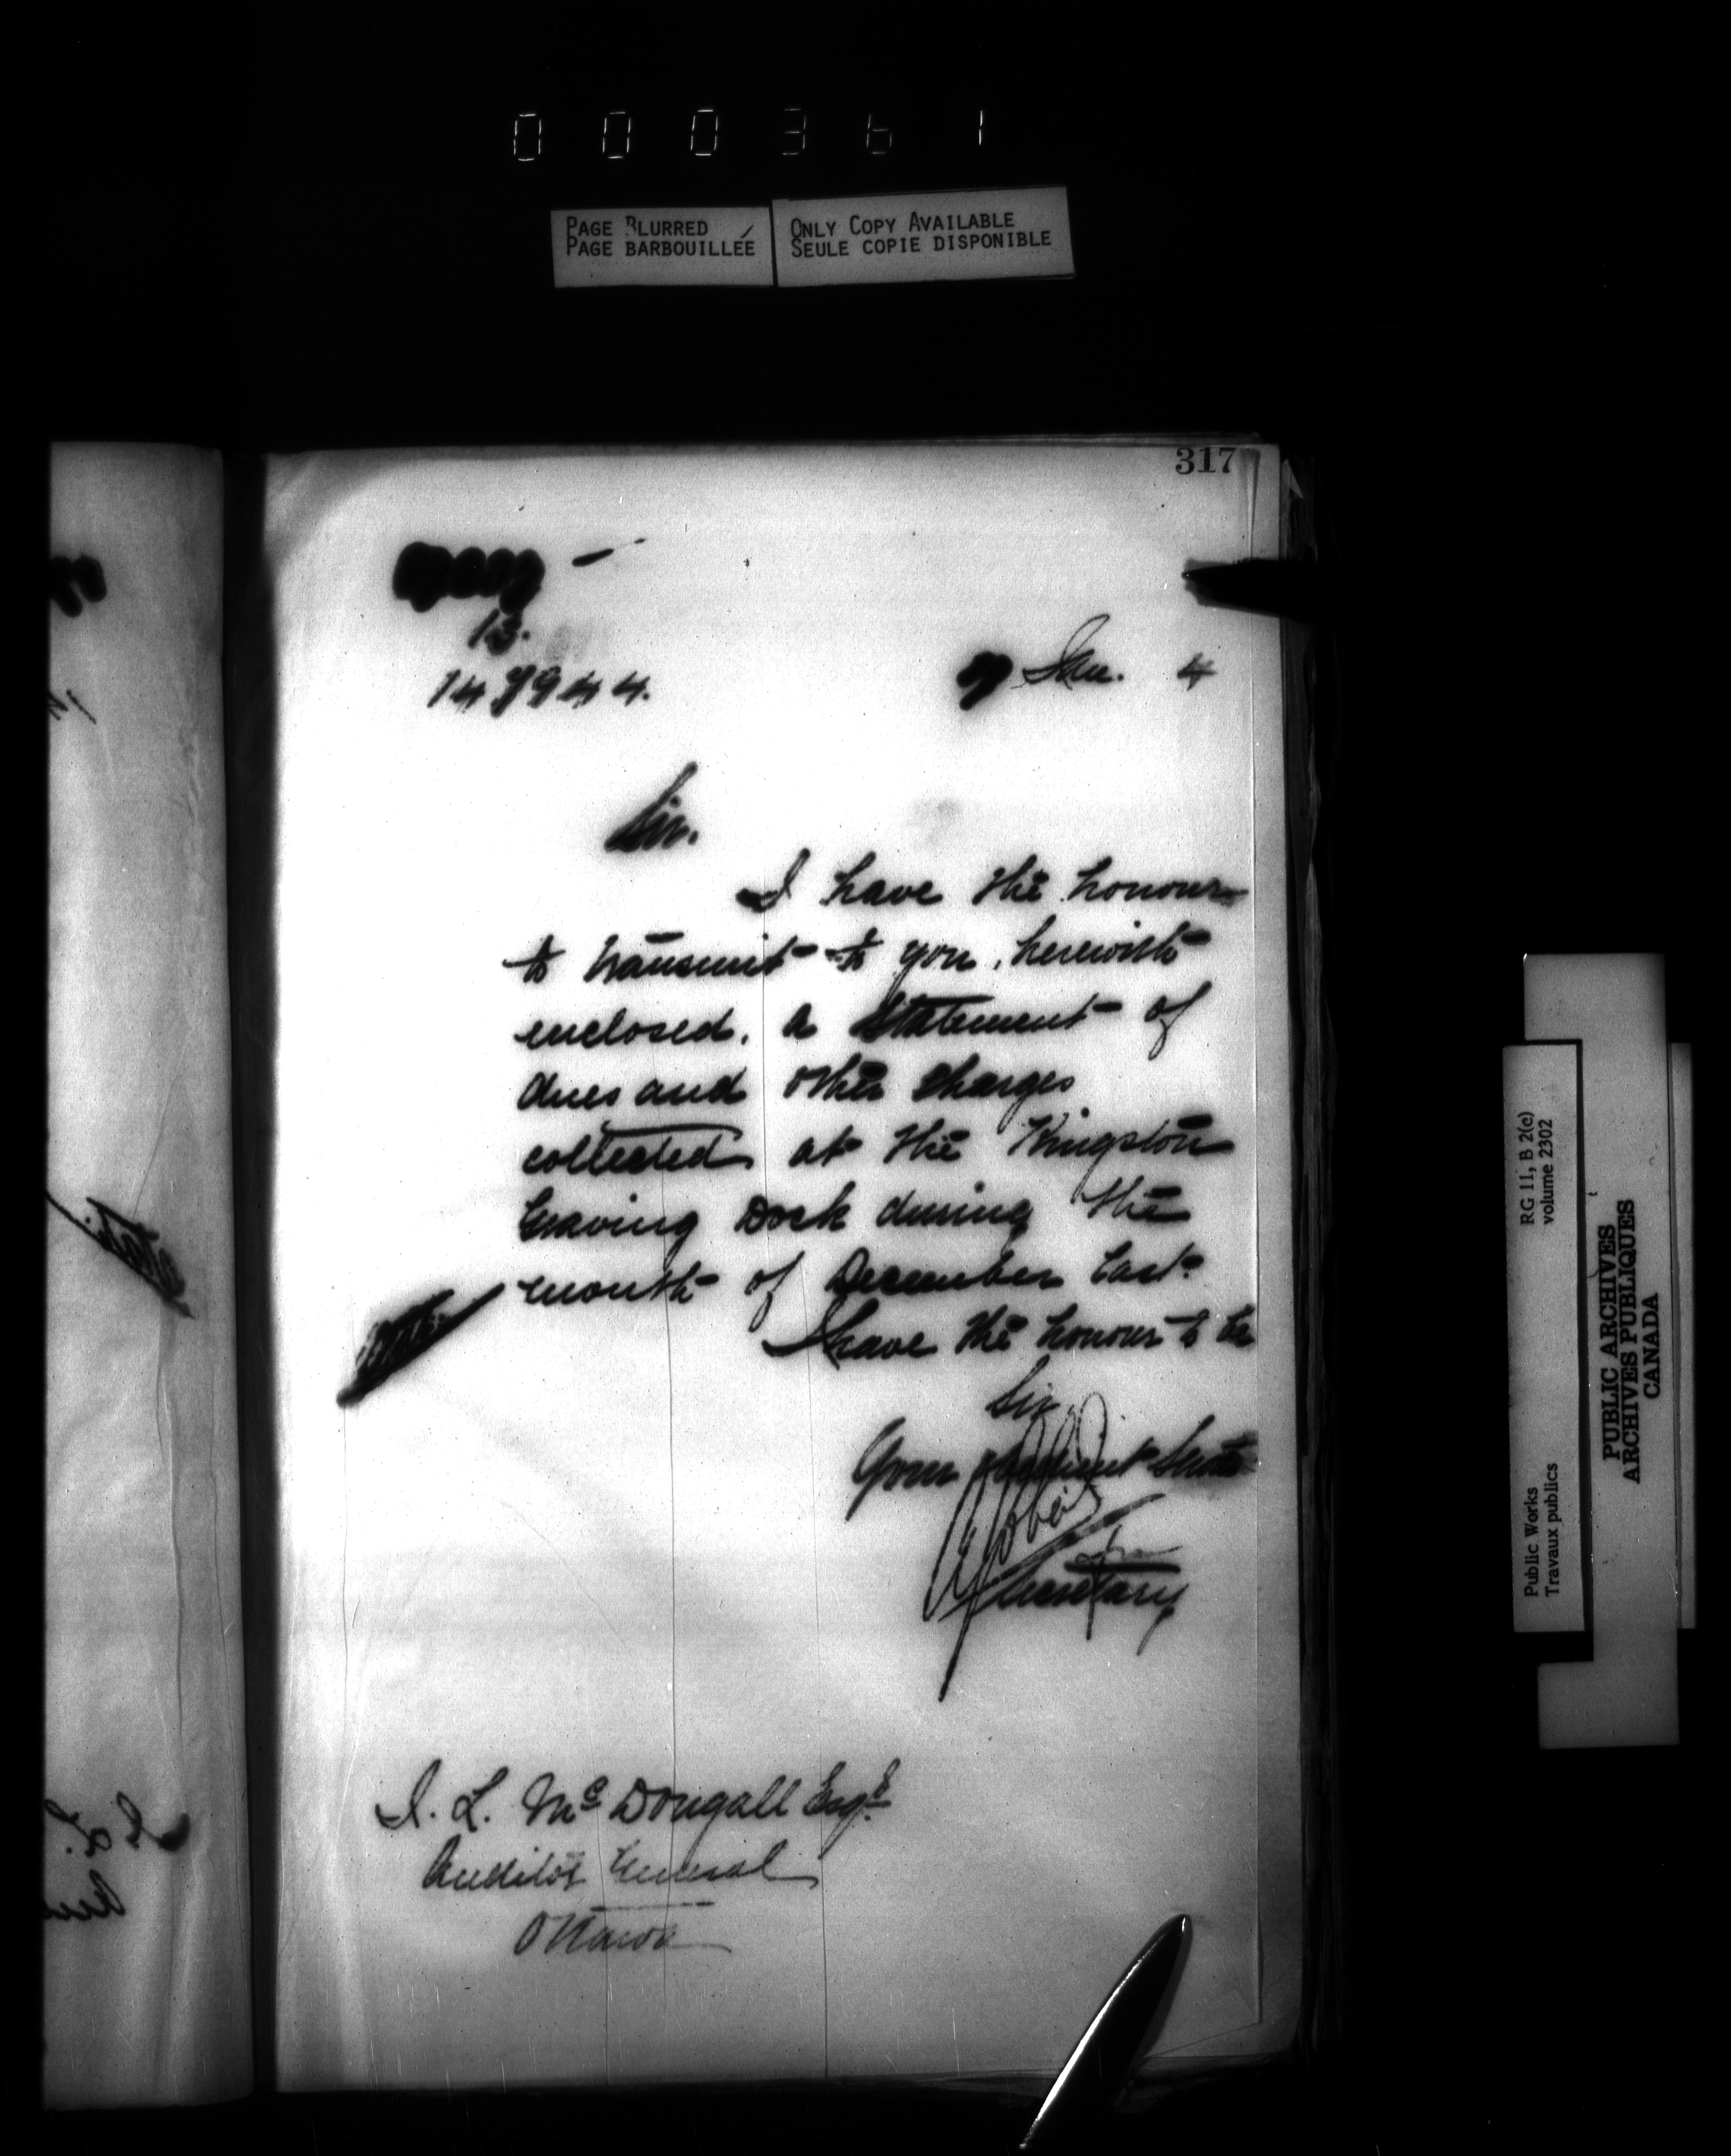 000361
PAGE BLURRED
PAGE BARBOUILLÉE
ONLY COPY AVAILABLE
SEULE COPIE DISPONIBLE
317
13.
147944.
9 Jan. 4
Sir.
I have the honour
to transmit to you, herewith
enclosed, a statement of
dues and other charges
collected at the Kingston
Graving Dock during the
month of December last.
I have the honour to be
Sir
Your obedient Servt
Secretary
J. L. Mc Dougall Esqr.
Auditor General
Ottawa
RG 11, B 2(c)
volume 2302
Public Works
Travaux publics
PUBLIC ARCHIVES
ARCHIVES PUBLIQUES
CANADA